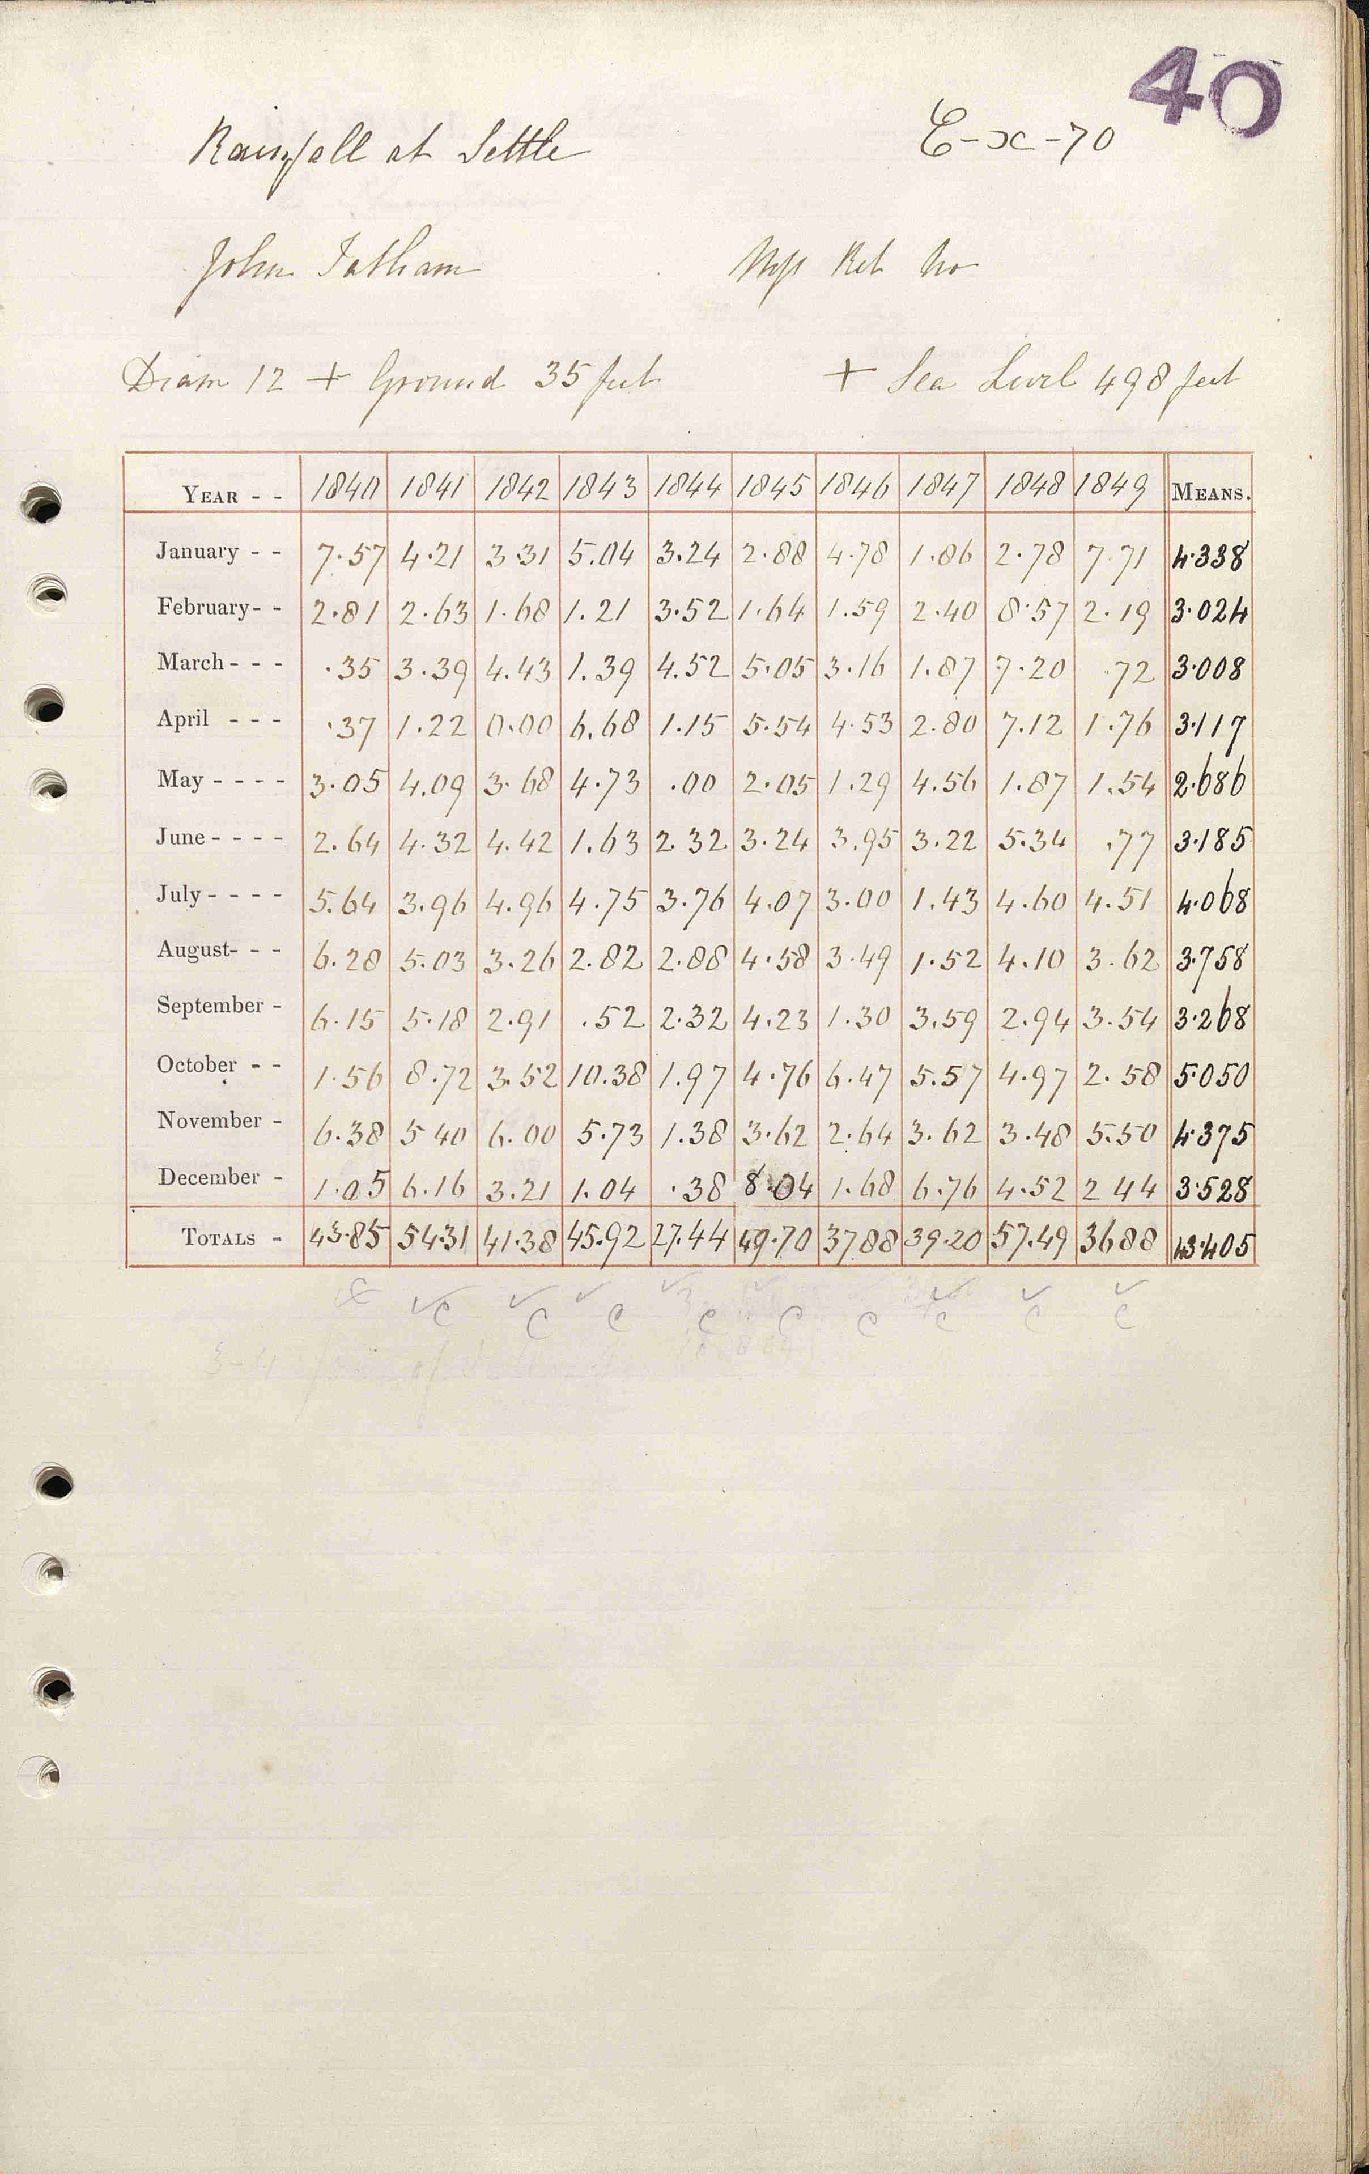 40
Rainfall at Settle E-x-70
John Tatham Mss Ret No
Diam 12 + Ground 35 feet + Sea Level 498 feet
YEAR - - 1840 1841 1842 1843 1844 1845 1846 1847 1848 1849 MEANS.
January - - 7.57 4.21 3.31 5.04 3.24 2.88 4.78 1.86 2.78 7.71 4.338
February - - 2.81 2.63 1.68 1.21 3.52 1.64 1.59 2.40 8.57 2.19 3.024
March - - - .35 3.39 4.43 1.39 4.52 5.05 3.16 1.87 7.20 .72 3.008
April - - - .37 1.22 0.00 6.68 1.15 5.54 4.53 2.80 7.12 1.76 3.117
May - - - - 3.05 4.09 3.68 4.73 .00 2.05 1.29 4.56 1.87 1.54 2.686
June - - - - 2.64 4.32 4.42 1.63 2.32 3.24 3.95 3.22 5.34 .77 3.185
July - - - - 5.64 3.96 4.96 4.75 3.76 4.07 3.00 1.43 4.60 4.51 4.068
August - - - 6.28 5.03 3.26 2.82 2.88 4.58 3.49 1.52 4.10 3.62 3.758
September - 6.15 5.18 2.91 .52 2.32 4.23 1.30 3.59 2.94 3.54 3.268
October - - 1.56 8.72 3.52 10.38 1.97 4.76 6.47 5.57 4.97 2.58 5.050
November - 6.38 5 40 6.00 5.73 1.38 3.62 2.64 3.62 3.48 5.50 4.375
December - 1.05 6.16 3.21 1.04 .38 8.04 1.68 6.76 4.52 2 44 3.528
TOTALS - 43.85 54.31 41.38 45.92 27.44 49.70 37 88 39.20 57.49 36 88 43.405
C C C C C C C C C